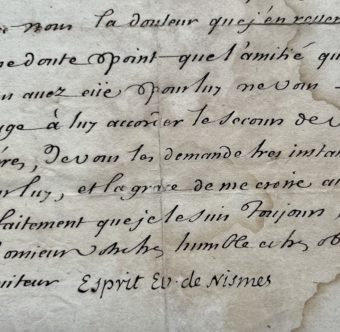 nous la douleur que j'en ressen
ne doute point que l'amitié qu
auez eüe pour luy ne vous
age à luy accorder le secours de v
res, Je vous les demande tres instam
ur luy, et la grace de me croire au
faitement que je le suis Toujours
Monsieur tres humble et tres ob
uiteur Esprit Ev. de Nismes